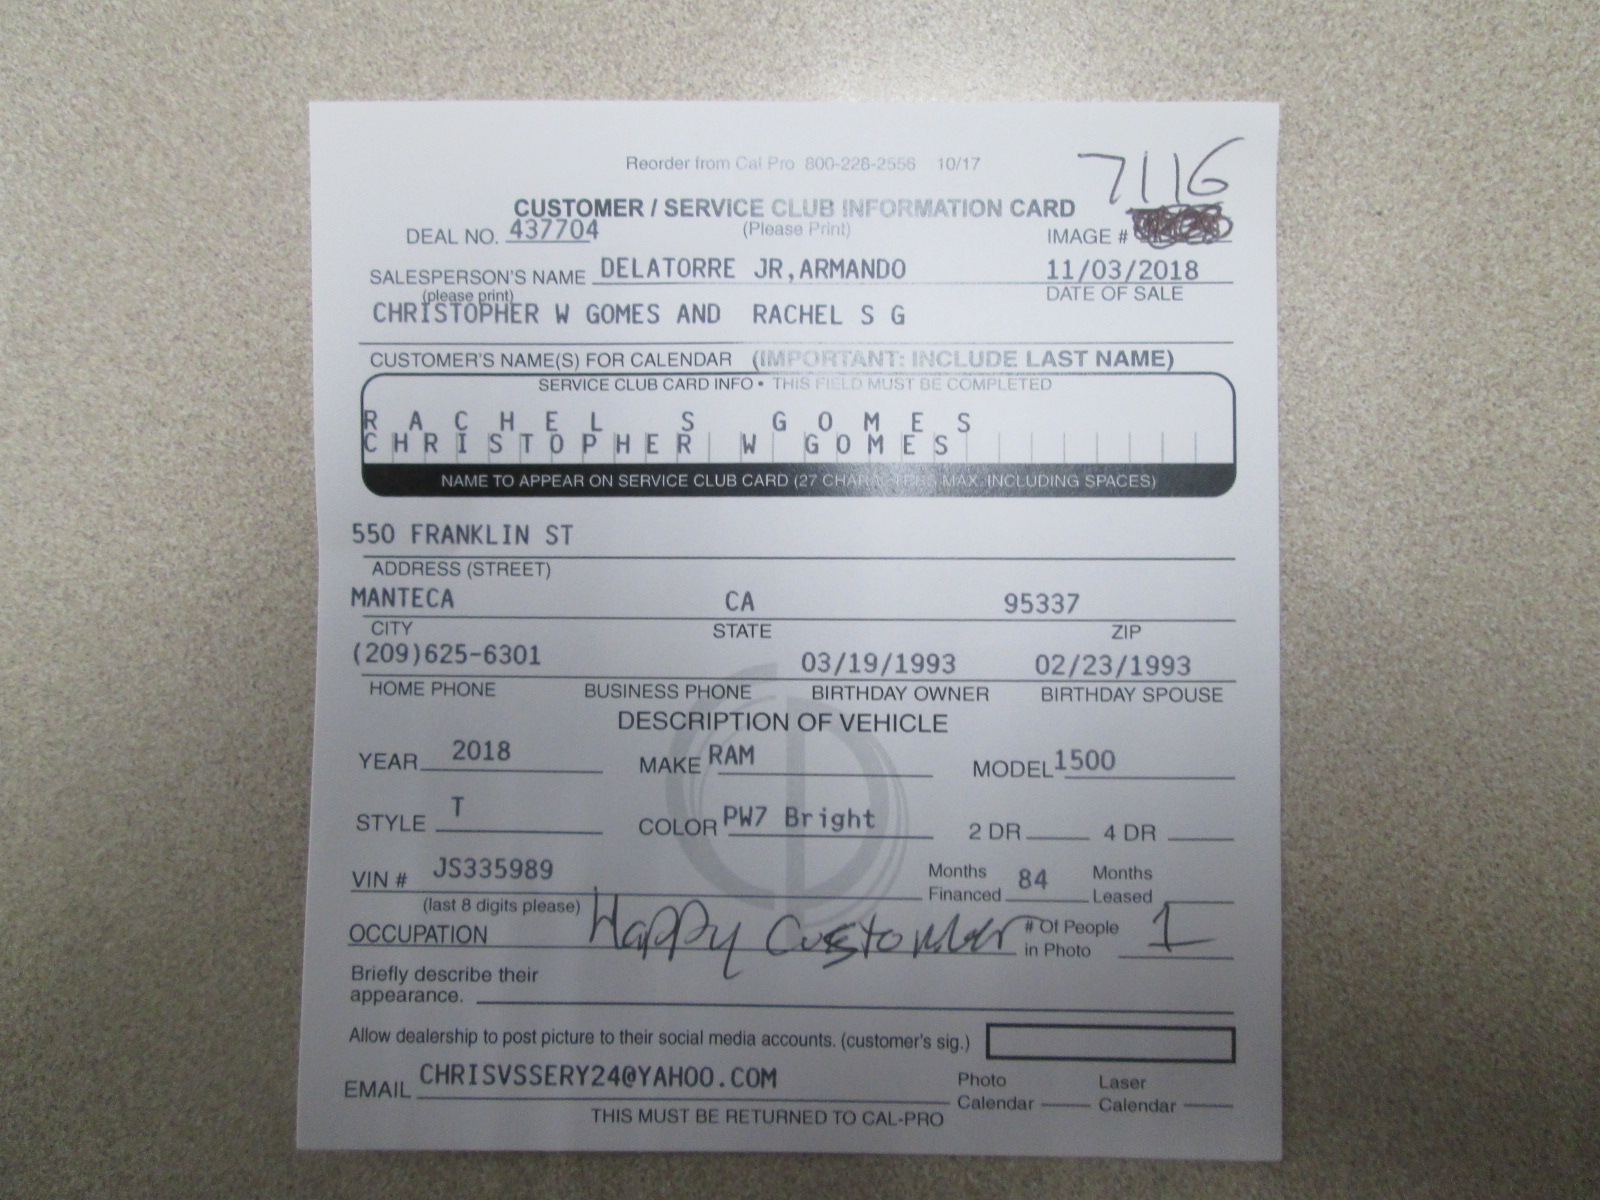 Reorder from Cal Pro 800-228-2556 10/17
7116
CUSTOMER / SERVICE CLUB INFORMATION CARD
DEAL NO. 437704 (Please Print) IMAGE #
SALESPERSON'S NAME DELATORRE JR,ARMANDO 11/03/2018
(please print) DATE OF SALE
CHRISTOPHER W GOMES AND RACHEL S G
CUSTOMER'S NAME(S) FOR CALENDAR (IMPORTANT: INCLUDE LAST NAME)
SERVICE CLUB CARD INFO • THIS FIELD MUST BE COMPLETED
RACHEL S GOMES
CHRISTOPHER W GOMES
NAME TO APPEAR ON SERVICE CLUB CARD (27 CHARACTERS MAX. INCLUDING SPACES)
550 FRANKLIN ST
ADDRESS (STREET)
MANTECA CA 95337
CITY STATE ZIP
(209)625-6301 03/19/1993 02/23/1993
HOME PHONE BUSINESS PHONE BIRTHDAY OWNER BIRTHDAY SPOUSE
DESCRIPTION OF VEHICLE
YEAR 2018 MAKE RAM MODEL 1500
STYLE T COLOR PW7 Bright 2 DR 4 DR
VIN # JS335989 Months Financed 84 Months Leased
(last 8 digits please)
OCCUPATION Happy Customer # Of People in Photo 1
Briefly describe their
appearance.
Allow dealership to post picture to their social media accounts. (customer's sig.)
EMAIL CHRISVSSERY24@YAHOO.COM Photo Calendar Laser Calendar
THIS MUST BE RETURNED TO CAL-PRO